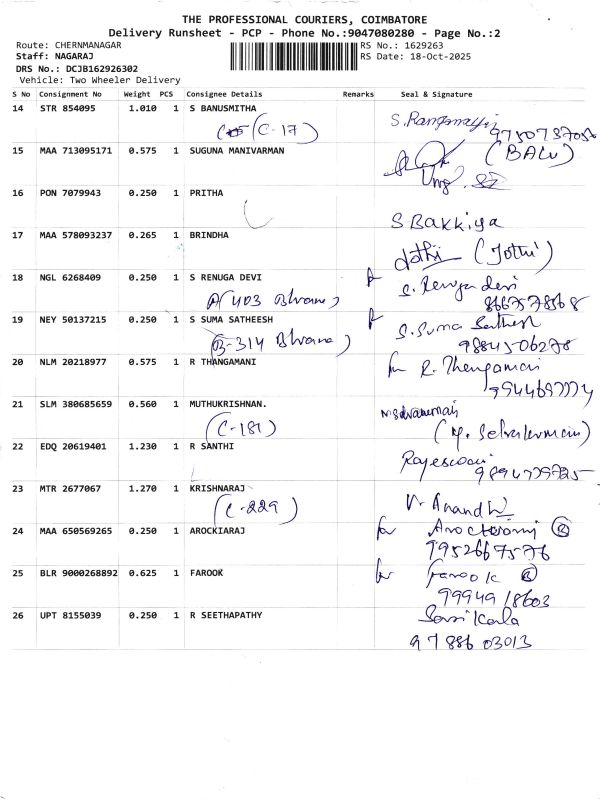 THE PROFESSIONAL COURIERS, COIMBATORE
Delivery Runsheet - PCP - Phone No.:9047080280 - Page No.:2
Route: CHERNMANAGAR RS No.: 1629263
Staff: NAGARAJ RS Date: 18-Oct-2025
DRS No.: DCJB162926302
Vehicle: Two Wheeler Delivery
S No Consignment No Weight PCS Consignee Details Remarks Seal & Signature
14 STR 854095 1.010 1 S BANUSMITHA
(C-17)
15 MAA 713095171 0.575 1 SUGUNA MANIVARMAN (BALU)
16 PON 7079943 0.250 1 PRITHA
S Bakkiya
17 MAA 578093237 0.265 1 BRINDHA
(Jothi)
18 NGL 6268409 0.250 1 S RENUGA DEVI S. Renuga devi
A/403
19 NEY 50137215 0.250 1 S SUMA SATHEESH S. Suma Sathesh
B-314 9884506278
20 NLM 20218977 0.575 1 R THANGAMANI for R. Thangamani
21 SLM 380685659 0.560 1 MUTHUKRISHNAN.
(C-181)
22 EDQ 20619401 1.230 1 R SANTHI
23 MTR 2677067 1.270 1 KRISHNARAJ V. Anand
(C-229)
24 MAA 650569265 0.250 1 AROCKIARAJ for
9952667576
25 BLR 9000268892 0.625 1 FAROOK for Farook
9994918603
26 UPT 8155039 0.250 1 R SEETHAPATHY Sasikala
97886 03013